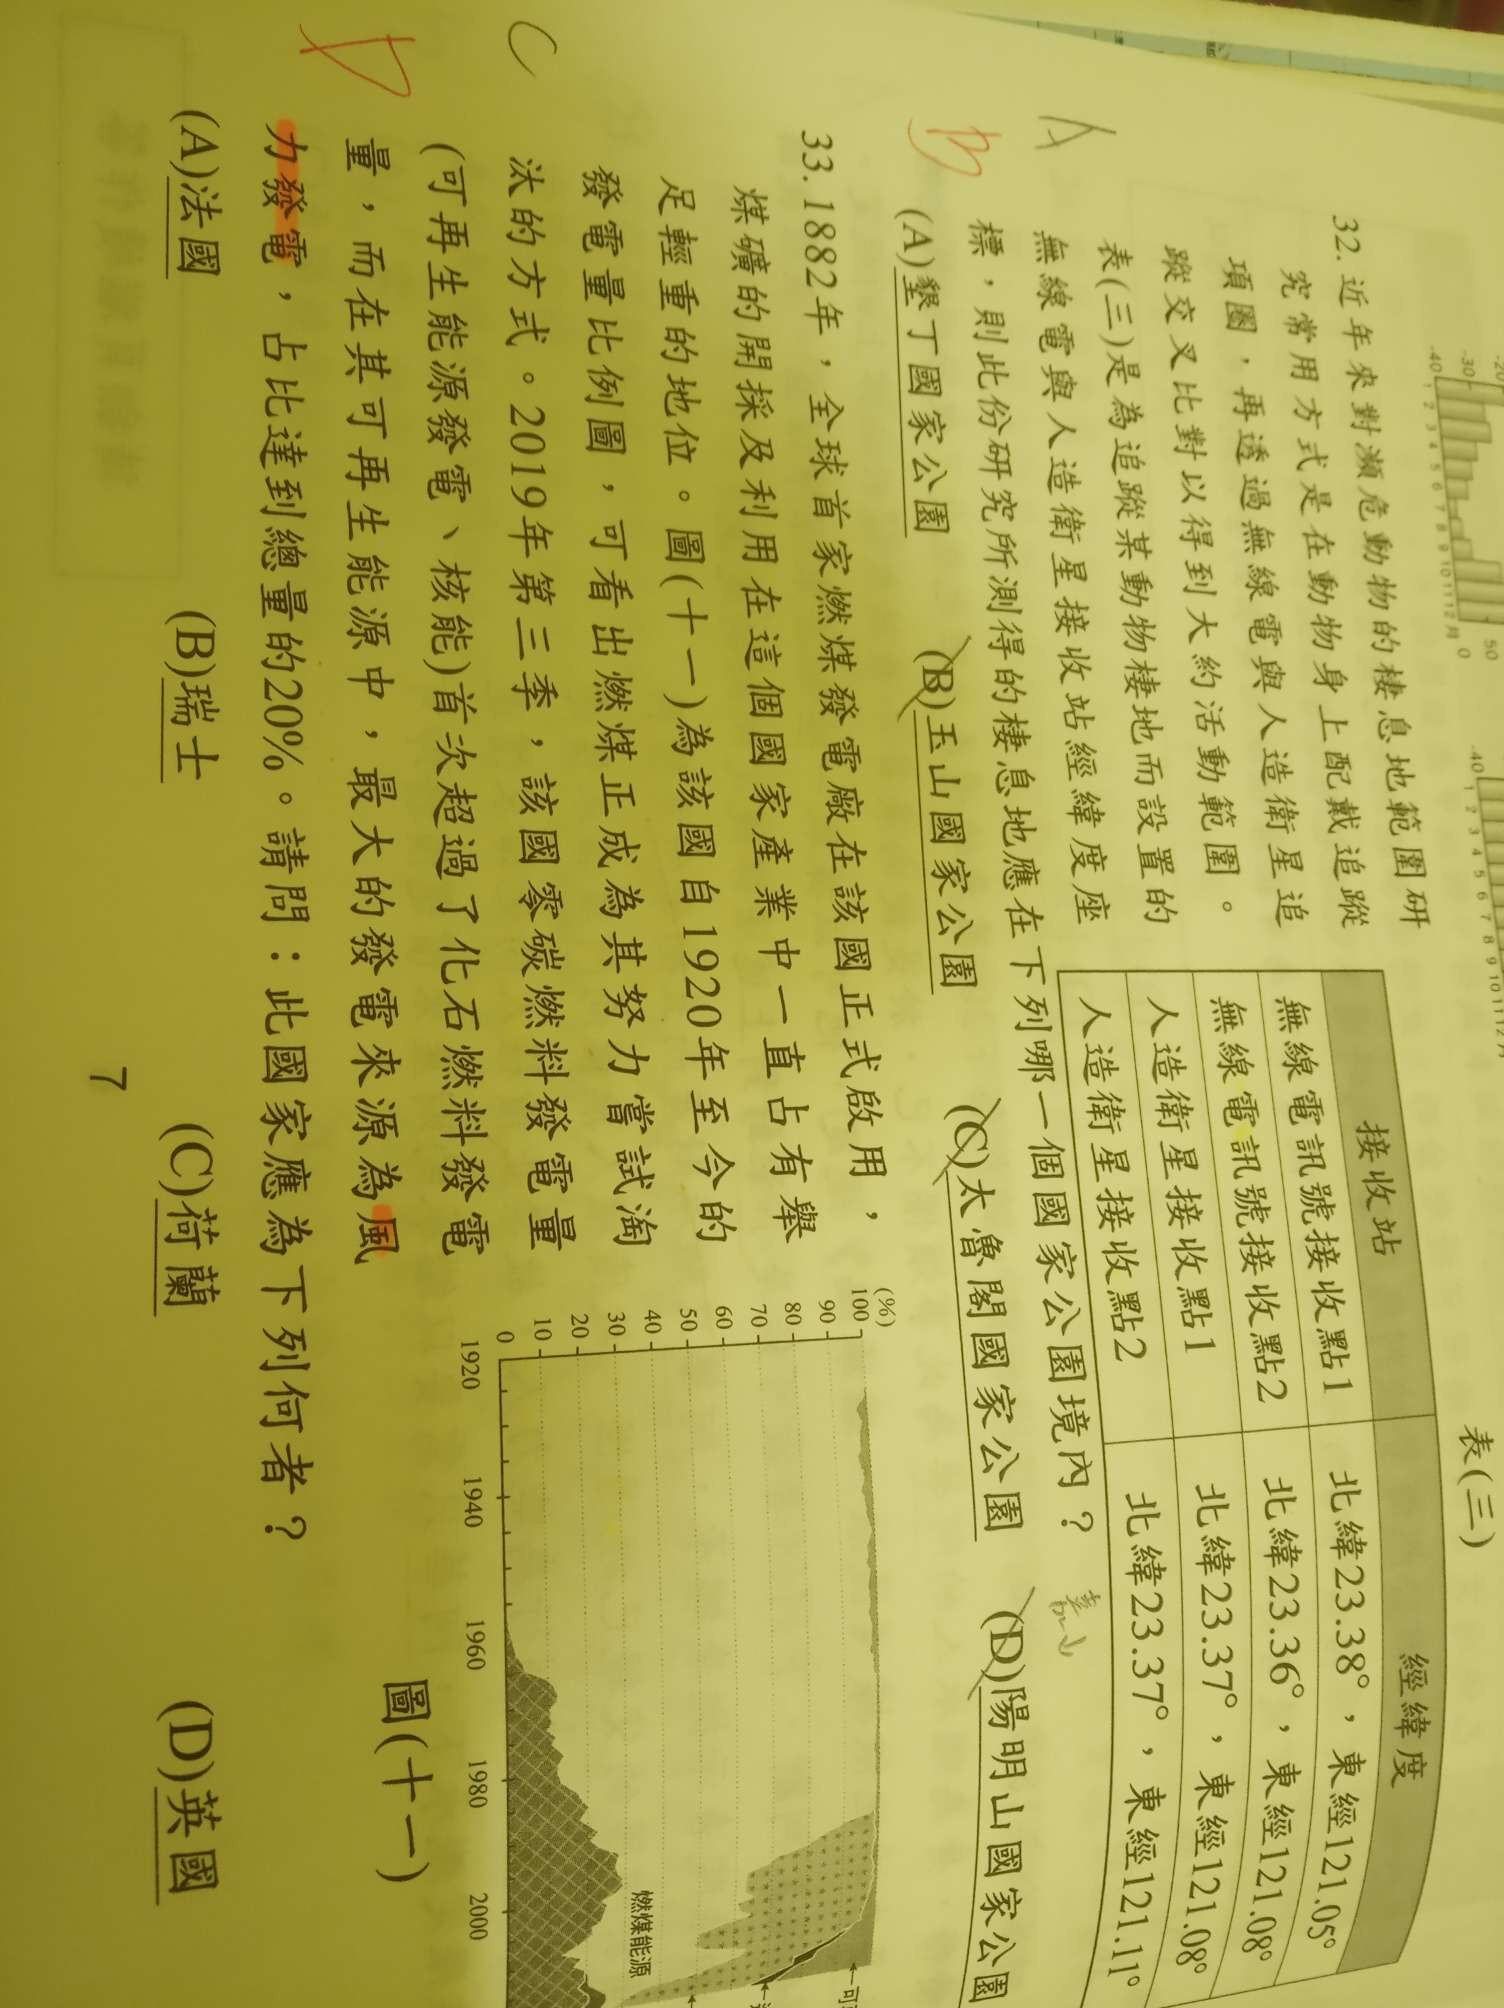 -20
-30
-40
1 2 3 4 5 6 7 8 9 10 11 12 月
50
0
-40
1 2 3 4 5 6 7 8 9 10 11 12 月
32. 近年來對瀕危動物的棲息地範圍研
究常用方式是在動物身上配戴追蹤
項圈，再透過無線電與人造衛星追
蹤交叉比對以得到大約活動範圍。
表(三)是為追蹤某動物棲地而設置的
無線電與人造衛星接收站經緯度座
標，則此份研究所測得的棲息地應在下列哪一個國家公園境內？
表(三)
接收站 經緯度
無線電訊號接收點1 北緯23.38°，東經121.05°
無線電訊號接收點2 北緯23.36°，東經121.08°
人造衛星接收點1 北緯23.37°，東經121.08°
人造衛星接收點2 北緯23.37°，東經121.11°
A
B
(A)墾丁國家公園 (B)玉山國家公園 (C)太魯閣國家公園 (D)陽明山國家公園
33. 1882年，全球首家燃煤發電廠在該國正式啟用，
煤礦的開採及利用在這個國家產業中一直占有舉
足輕重的地位。圖(十一)為該國自1920年至今的
發電量比例圖，可看出燃煤正成為其努力嘗試淘
汰的方式。2019年第三季，該國零碳燃料發電量
(可再生能源發電、核能)首次超過了化石燃料發電
量，而在其可再生能源中，最大的發電來源為風
力發電，占比達到總量的20%。請問：此國家應為下列何者？
C
D
(%)
100
90
80
70
60
50
40
30
20
10
0
1920 1940 1960 1980 2000
燃煤能源
圖(十一)
(A)法國 (B)瑞士 (C)荷蘭 (D)英國
7